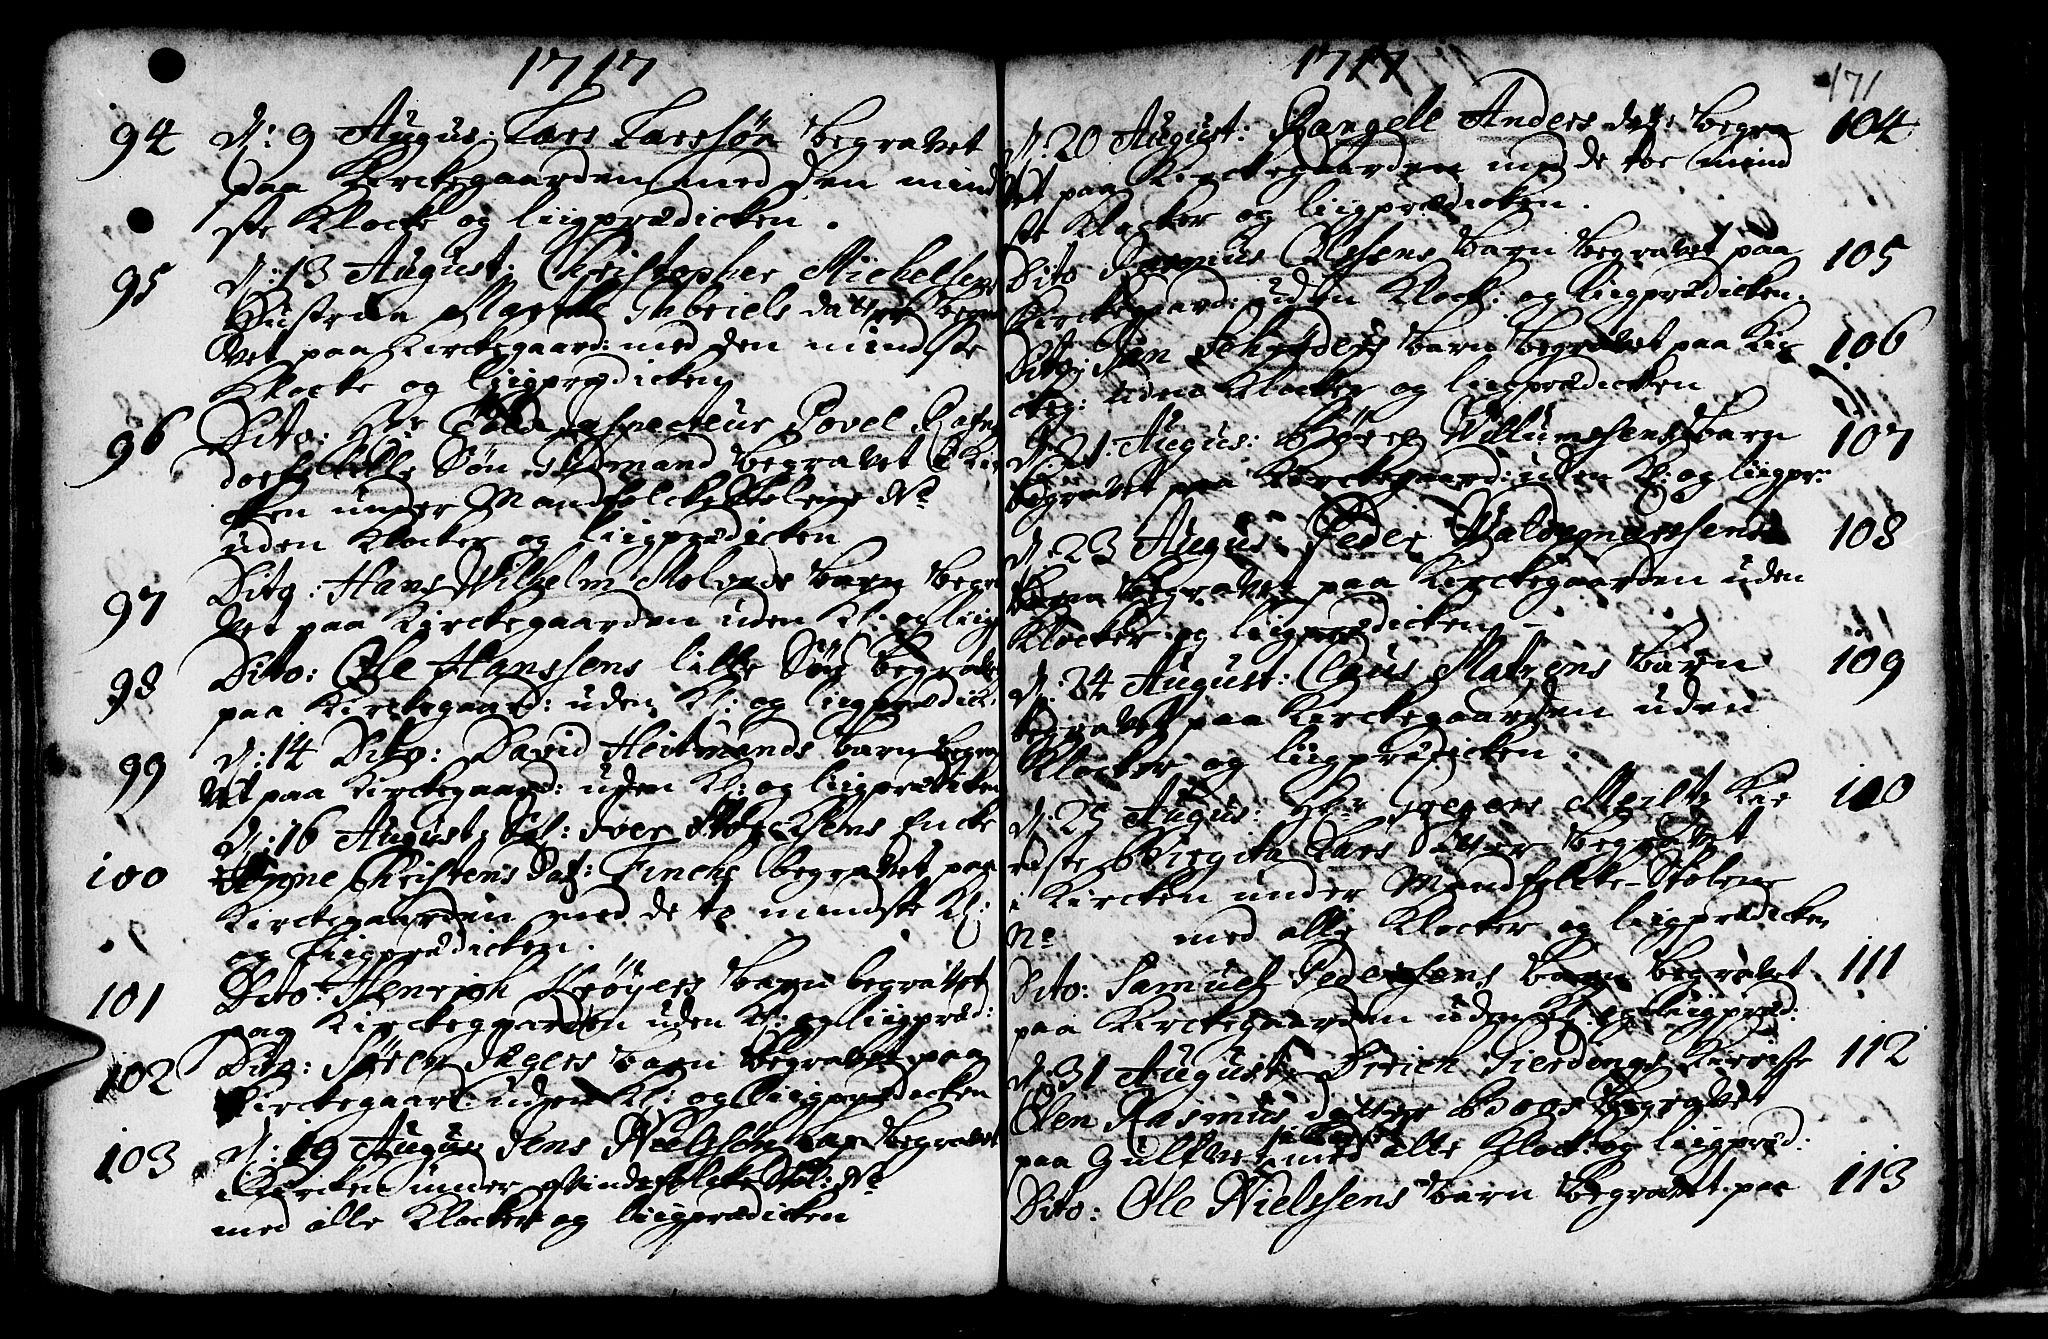 1717
94 d: 9 Augus: Lars Larssøn begravet
paa Kirckegaarden med den mind
ste Klocke og liigprædicken.
95 d: 13 August: Christopher Michelsens
Hustrue Marthe Gabriels datter begra
vet paa Kirckegaard: med den mindste
Klocke og liigprædicken
96 Dito: Hr Povel
lille Søn begravet i Kir
cken under Mandfolcke Stolene No
uden Klocker og liigprædicken
97 Dito: Hans Wilhelm barn begra
vet paa Kirckegaarden uden Kl: og liigp
98 Dito: Ole Hanssens lille Søn begravet
paa Kirckegaard: uden Kl: og liigprædick
99 d: 14 Dito: David Heitmands barn begra
vet paa Kirckegaard: uden Kl: og liigprædicken
d: 16 August: Sal: Iver Encke
100 Anne Christens dat: Finche begravet paa
Kirckegaarden med de to mindste Kl:
og liigprædicken.
101 Dito: Henrich Krøyers barn begravet
paa Kirckegaarden uden Kl: og liigpræd:
102 Dito: Søren Jagers barn begravet paa
Kirckegaard uden Kl: og liigprædicken
103 d: 19 Augus: Jens Nielssøn begravet
i Kircken under qvindefolcke Stol: No
med alle Klocker og liigprædicken
1717
171
d: 20 August: Rangell Anders dat: begra 104
vet paa Kirckegaarden med de toe mind
ste Klocker og liigprædicken.
Dito Rasmus Olssens barn begravet paa 105
Kirckegaard: uden Klock: og liigprædicken.
Dito: Schrøders barn begravet paa Kir 106
ckeg: uden Klocker og liigprædicken
d: 21 Augus: Børge Willumssens barn 107
begravet paa Kirckegaard: uden Kl: og liigpr:
d: 23 Augus: Peder Waldemarssens 108
barn begravet paa Kirckegaarden uden
Klocker og liigprædicken
d: 24 August: Claus Matzens barn 109
begravet paa Kirckegaarden uden
Klocker og liigprædicken.
d: Augus: Hr Gregers Kie 110
reste Birgita Lars datter begravet
i Kircken under Mandfolcke-Stolene
No med alle Klocker og liigprædicken
Dito: Samuel Pederssens barn begravet 111
paa Kirckegaarden uden Kl: og liigpræd:
d: 31 August: Dirich Gierdings Kieriste 112
Elen Rasmus datter Boos begravet
paa med alle Klock: og liigpræd:
Dito: Ole Nielssens barn begravet paa 113